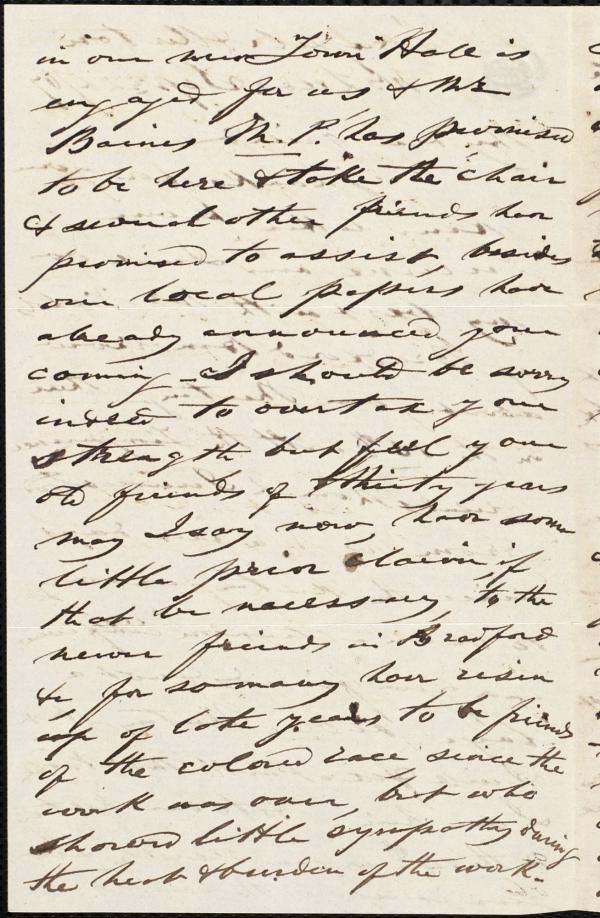 in our new "Town" Hall is
engaged for us & Mr
Baines M.P. has promised
to be here & take the Chair
& several other friends have
promised to assist, besides
our local papers have
already announced your
coming - I should be sorry
indeed to overtax your
strength but feel your
old friends of thirty years
may I say now, have some
little prior claim, if
that be necessary, to the
newer friends in Bradford
&c, for so many have risen
up of late years to be friends
of the colored race, since the
work was over, but who
showed little sympathy during
the heat & burden of the work -